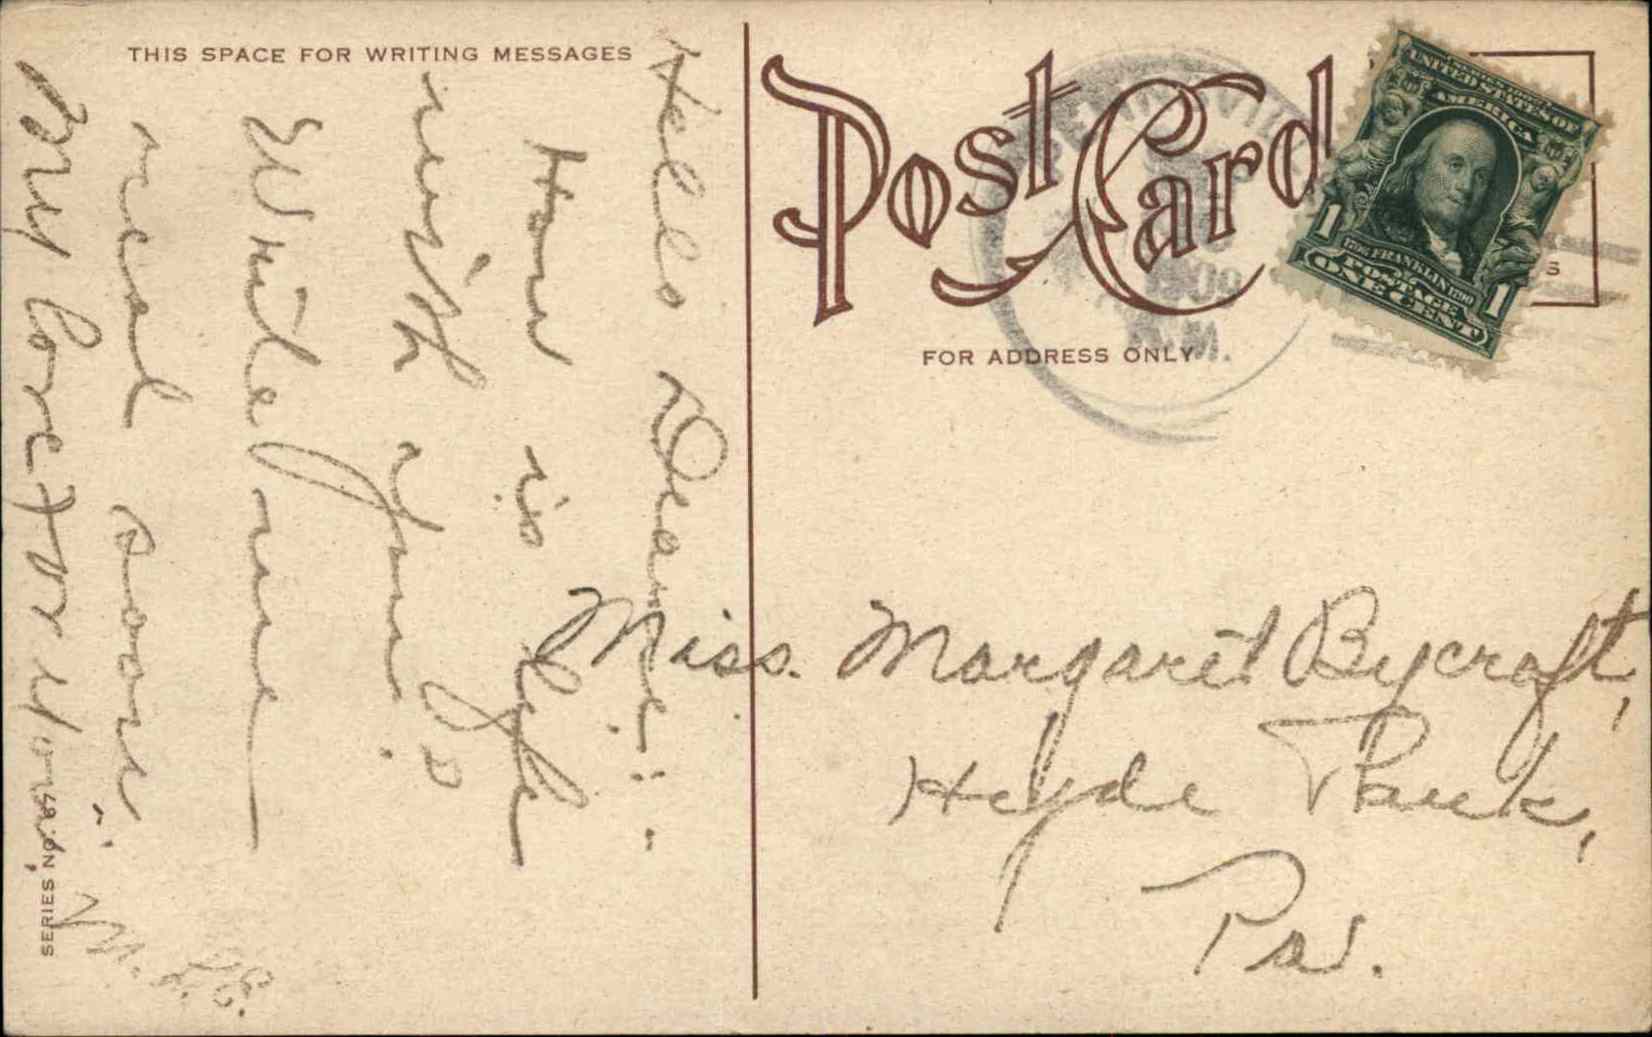 THIS SPACE FOR WRITING MESSAGES
Hello Deane:-
How is life
with you. Do
Write me
real soon.
My love for yours,
M. L. E.
SERIES NO.
Post Card
FOR ADDRESS ONLY
1909
A.M.
UNITED STATES OF
AMERICA
1706 FRANKLIN 1790
POSTAGE
ONE CENT
1 1
Miss. Margaret Bycroft,
Hyde Park,
Pa.